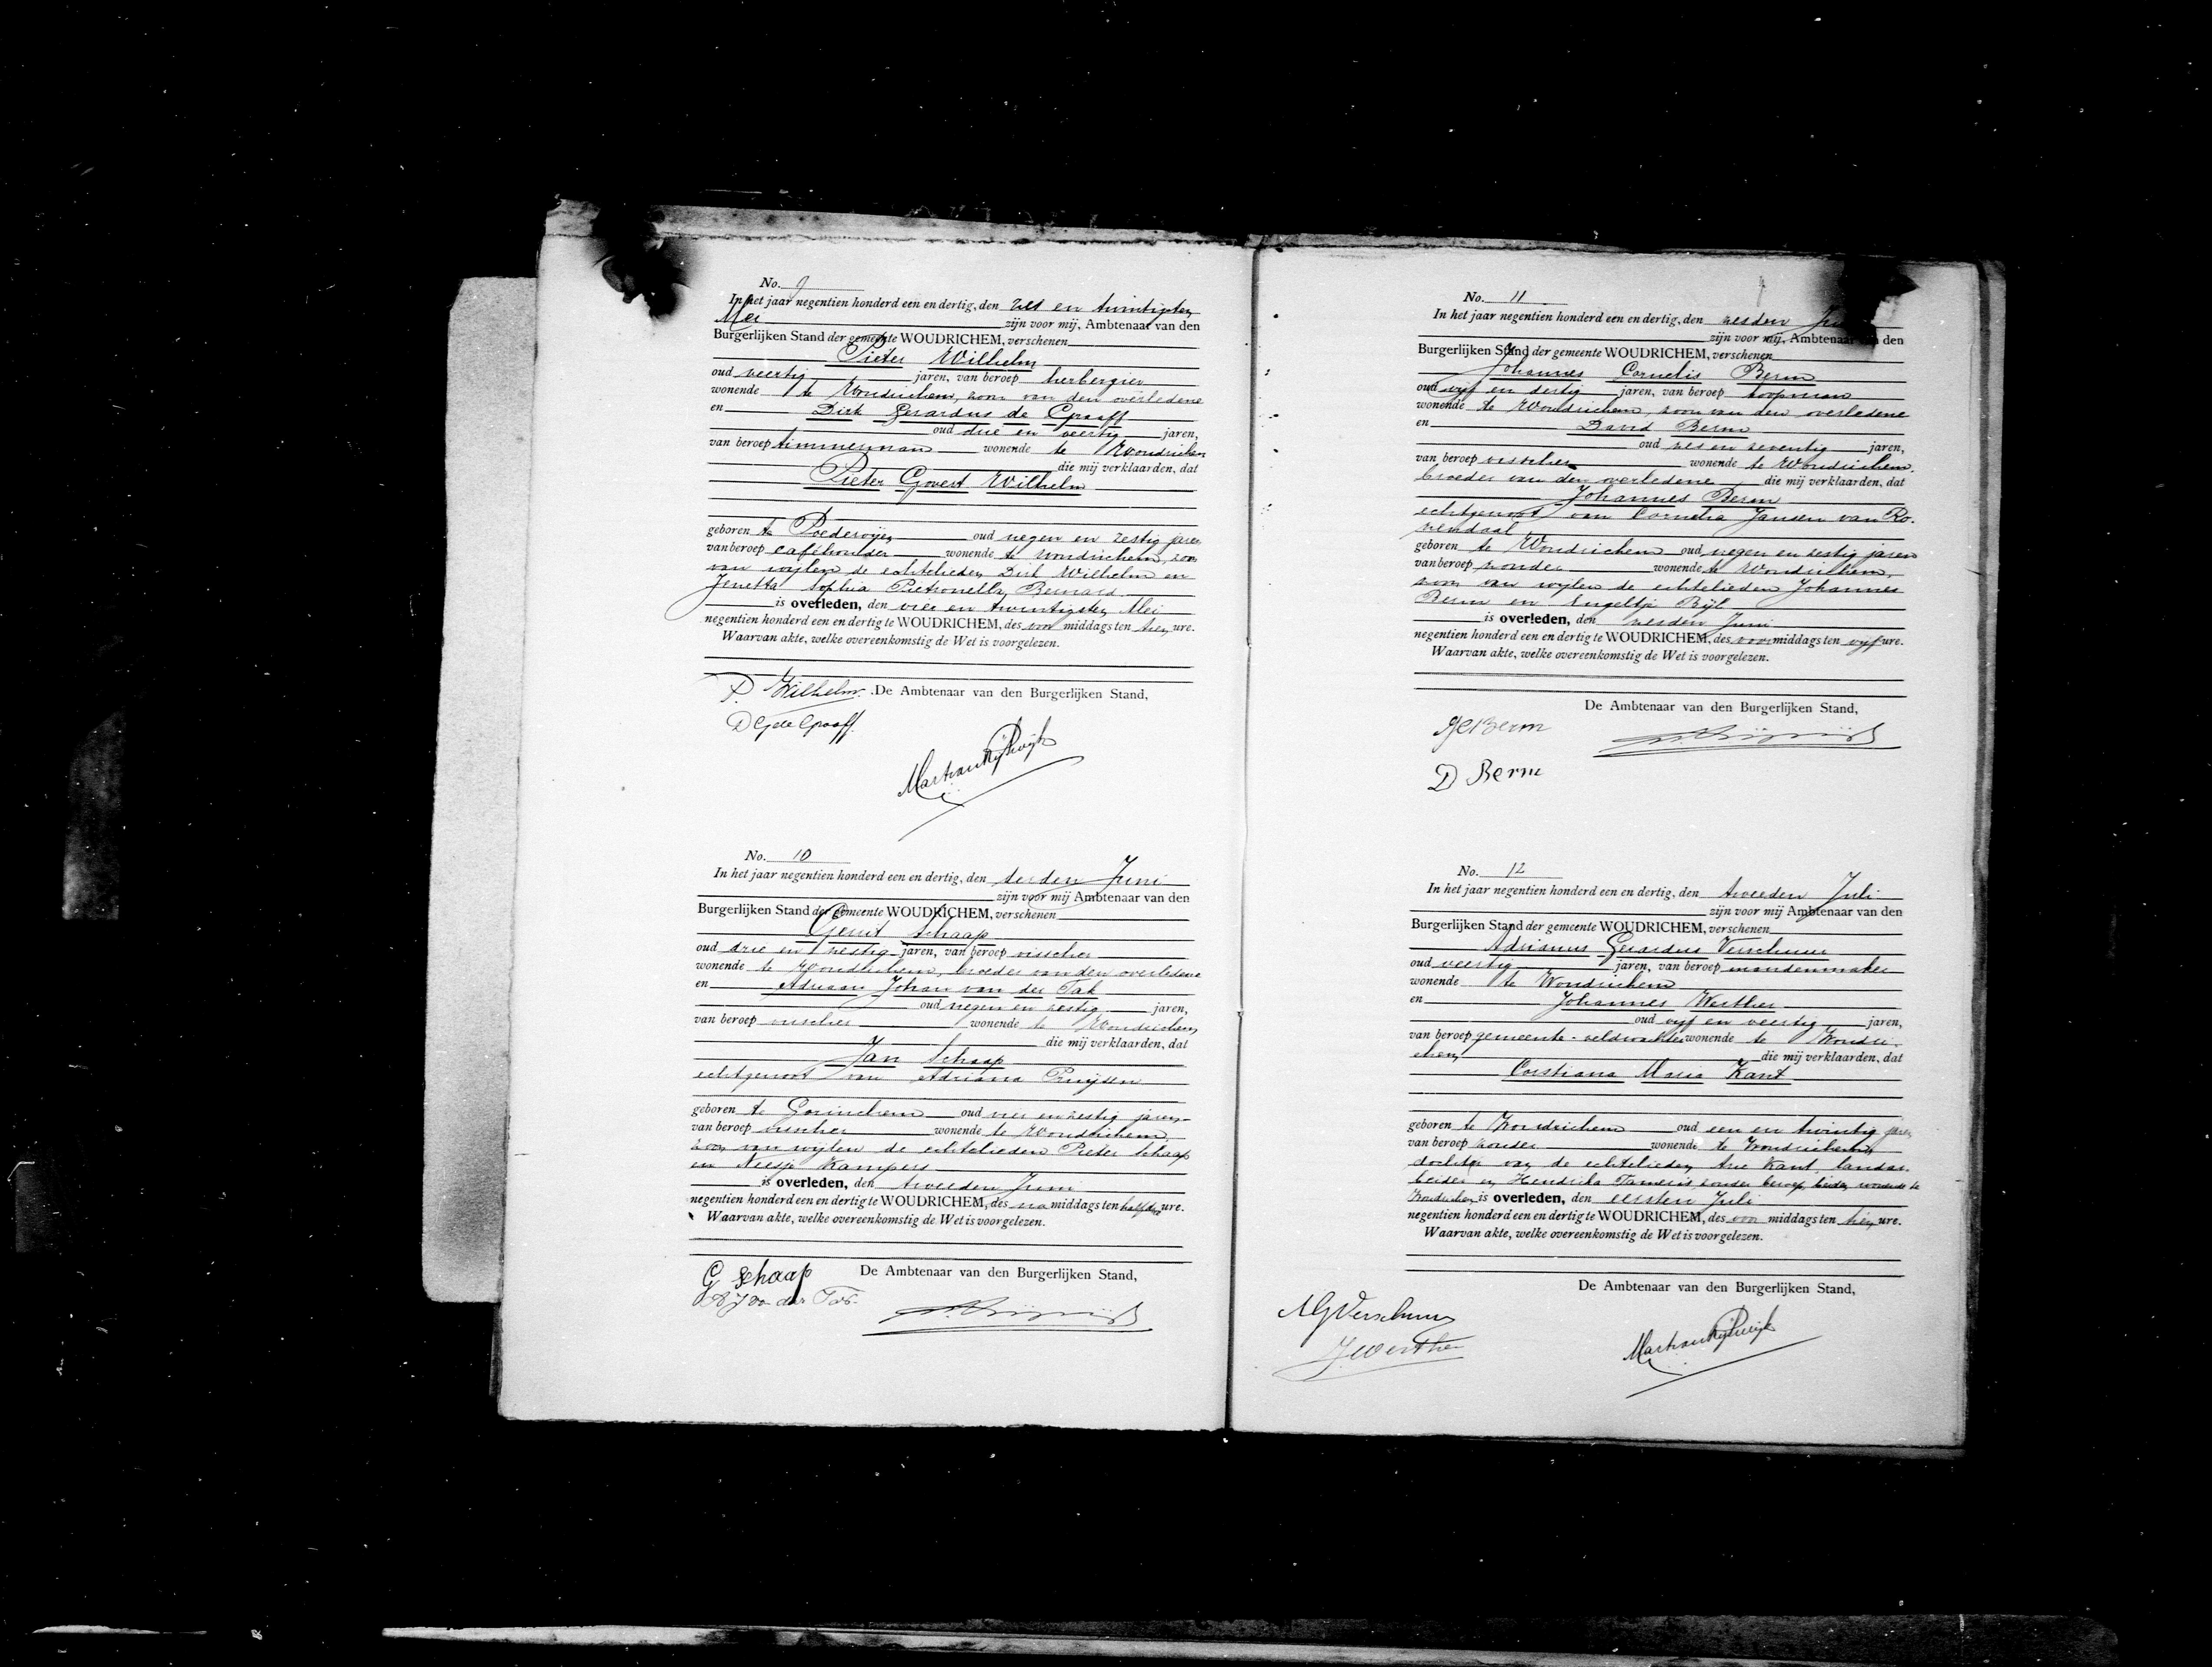 No. 9
In het jaar negentien honderd een en dertig, den zes en twintigsten
Mei zijn voor mij, Ambtenaar van den
Burgerlijken Stand der gemeente WOUDRICHEM, verschenen
Pieter Wilhelm
oud veertig jaren, van beroep herbergier
wonende te Woudrichem, zoon van den overledene
en Dirk Gerardus de Graaff
oud drie en veertig jaren,
van beroep timmerman wonende te Woudrichem
die mij verklaarden, dat
Pieter Govert Wilhelm
geboren te Poederoijen oud negen en zestig jaren
van beroep caféhouder wonende te Woudrichem, zoon
van wijlen de echtelieden Dirk Wilhelm en
Jenetta Sophia Pietronella Bernard
is overleden, den vier en twintigsten Mei
negentien honderd een en dertig te WOUDRICHEM, des voor middags ten tien ure.
Waarvan akte, welke overeenkomstig de Wet is voorgelezen.
P. Wilhelm. De Ambtenaar van den Burgerlijken Stand,
D G de Graaff.
No. 10
In het jaar negentien honderd een en dertig, den derden Juni
zijn voor mij Ambtenaar van den
Burgerlijken Stand der Gemeente WOUDRICHEM, verschenen
Gerrit Schaap
oud drie en zestig jaren, van beroep visscher
wonende te Woudrichem, broeder van den overledene
en Adriaan Johan van der Tak
oud negen en zestig jaren,
van beroep visscher wonende te Woudrichem
die mij verklaarden, dat
Jan Schaap
echtgenoot van Adriana Pruijsen
geboren te Gorinchem oud vier en zestig jaren
van beroep visscher wonende te Woudrichem,
zoon van wijlen de echtelieden Pieter Schaap
en Neesje Kampers
is overleden, den tweeden Juni
negentien honderd een en dertig te WOUDRICHEM, des na middags ten half drie ure.
Waarvan akte, welke overeenkomstig de Wet is voorgelezen.
G Schaap De Ambtenaar van den Burgerlijken Stand,
A J van der Tak.
No. 11
In het jaar negentien honderd een en dertig, den zesden
zijn voor mij, Ambtenaar van den
Burgerlijken Stand der gemeente WOUDRICHEM, verschenen
Johannes Cornelis Berm
oud vijf en dertig jaren, van beroep koopman
wonende te Woudrichem, zoon van den overledene
en David Berm
oud zes en zeventig jaren,
van beroep visscher wonende te Woudrichem,
broeder van den overledene die mij verklaarden, dat
Johannes Berm
echtgenoot van Cornelia Jansen van Ro-
zendaal
geboren te Woudrichem oud negen en zestig jaren
van beroep zonder wonende te Woudrichem,
zoon van wijlen de echtelieden Johannes
Berm en Engeltje Bijl
is overleden, den zesden Juni
negentien honderd een en dertig te WOUDRICHEM, des voor middags ten vijf ure.
Waarvan akte, welke overeenkomstig de Wet is voorgelezen.
De Ambtenaar van den Burgerlijken Stand,
JC Berm
D Berm
No. 12
In het jaar negentien honderd een en dertig, den tweeden Juli
zijn voor mij Ambtenaar van den
Burgerlijken Stand der gemeente WOUDRICHEM, verschenen
Adrianus Gerardus Verschuur
oud veertig jaren, van beroep mandenmaker
wonende te Woudrichem
en Johannes Werther
oud vijf en veertig jaren,
van beroep gemeente-veldwachter wonende te Woudri-
chem die mij verklaarden, dat
Corstiana Maria Kant
geboren te Woudrichem oud een en twintig jaren
van beroep zonder wonende te Woudrichem,
dochter van de echtelieden Arie Kant, landar-
beider en Hendrika Tameris zonder beroep, beiden wonende te
Woudrichem is overleden, den eersten Juli
negentien honderd een en dertig te WOUDRICHEM, des voor middags ten tien ure.
Waarvan akte, welke overeenkomstig de Wet is voorgelezen.
De Ambtenaar van den Burgerlijken Stand,
A G Verschuur
J Werther